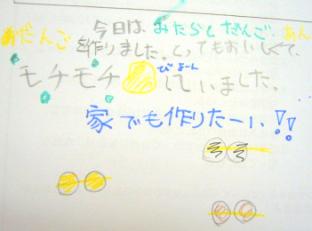 今日は、みたらしだんご、あん
おだんごを作りました。とってもおいしくて、
モチモチしていました。
びよーん
家でも作りたーい!!